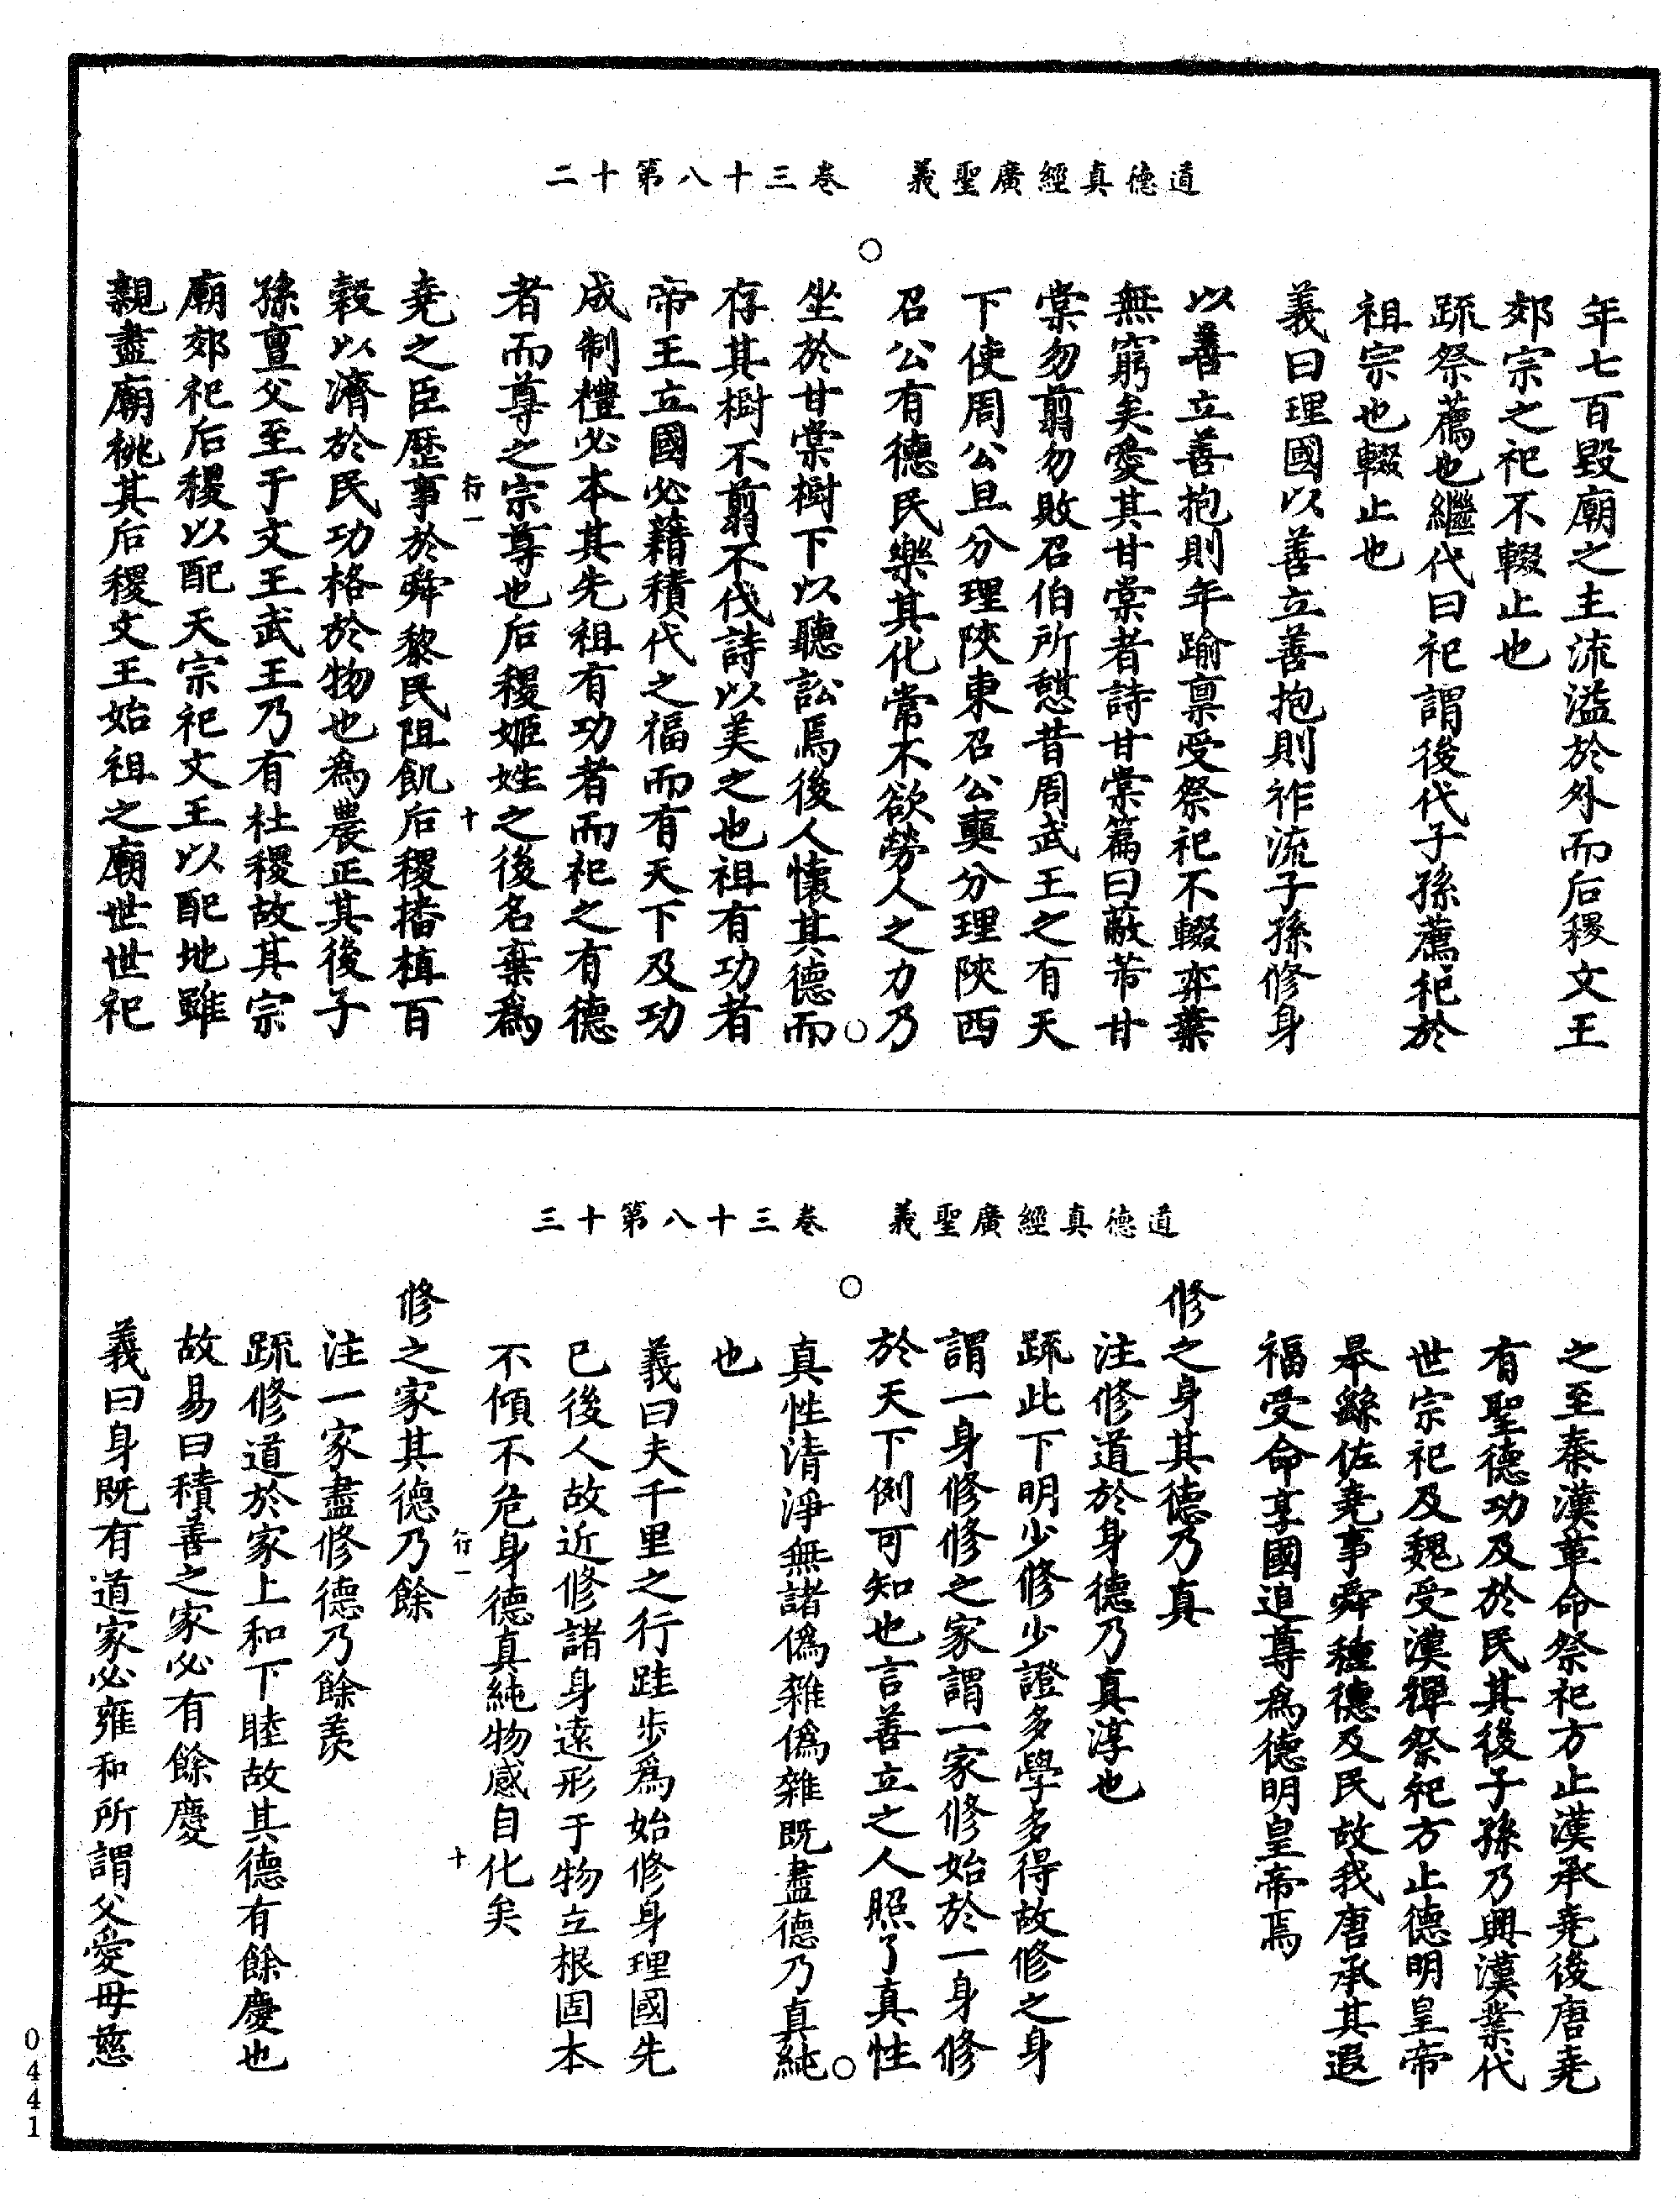 道德真經廣聖義　卷三十八第十二
年七百毀廟之主流溢於外而后稷文王
郊宗之祀不輟止也
疏祭薦也繼代曰祀謂後代子孫薦祀於
祖宗也輟止也
義曰理國以善立善抱則祚流子孫修身
以善立善抱則年踰禀受祭祀不輟弈葉
無窮矣愛其甘棠者詩甘棠篇曰蔽芾甘
棠勿翦勿敗召伯所憩昔周武王之有天
下使周公旦分理陝東召公奭分理陝西
召公有德民樂其化常不欲勞人之力乃
坐於甘棠樹下以聽訟焉後人懷其德而
存其樹不翦不伐詩以美之也祖有功者
帝王立國必藉積代之福而有天下及功
成制禮必本其先祖有功者而祀之有德
者而尊之宗尊也后稷姬姓之後名棄為
堯之臣歷事於舜黎民阻飢后稷播植百
行一　十
穀以濟於民功格於物也為農正其後子
孫亶父至于文王武王乃有社稷故其宗
廟郊祀后稷以配天宗祀文王以配地雖
親盡廟祧其后稷文王始祖之廟世世祀
道德真經廣聖義　卷三十八第十三
之至秦漢革命祭祀方止漢承堯後唐堯
有聖德功及於民其後子孫乃興漢業代
世宗祀及魏受漢禪祭祀方止德明皇帝
皋繇佐堯事舜種德及民故我唐承其遐
福受命享國追尊為德明皇帝焉
修之身其德乃真
注修道於身德乃真淳也
疏此下明少修少證多學多得故修之身
謂一身修修之家謂一家修始於一身修
於天下例可知也言善立之人照了真性
真性清淨無諸偽雜偽雜既盡德乃真純
也
義曰夫千里之行跬步為始修身理國先
已後人故近修諸身遠形于物立根固本
不傾不危身德真純物感自化矣
行一　十
修之家其德乃餘
注一家盡修德乃餘羨
疏修道於家上和下睦故其德有餘慶也
故易曰積善之家必有餘慶
義曰身既有道家必雍和所謂父愛母慈
0441